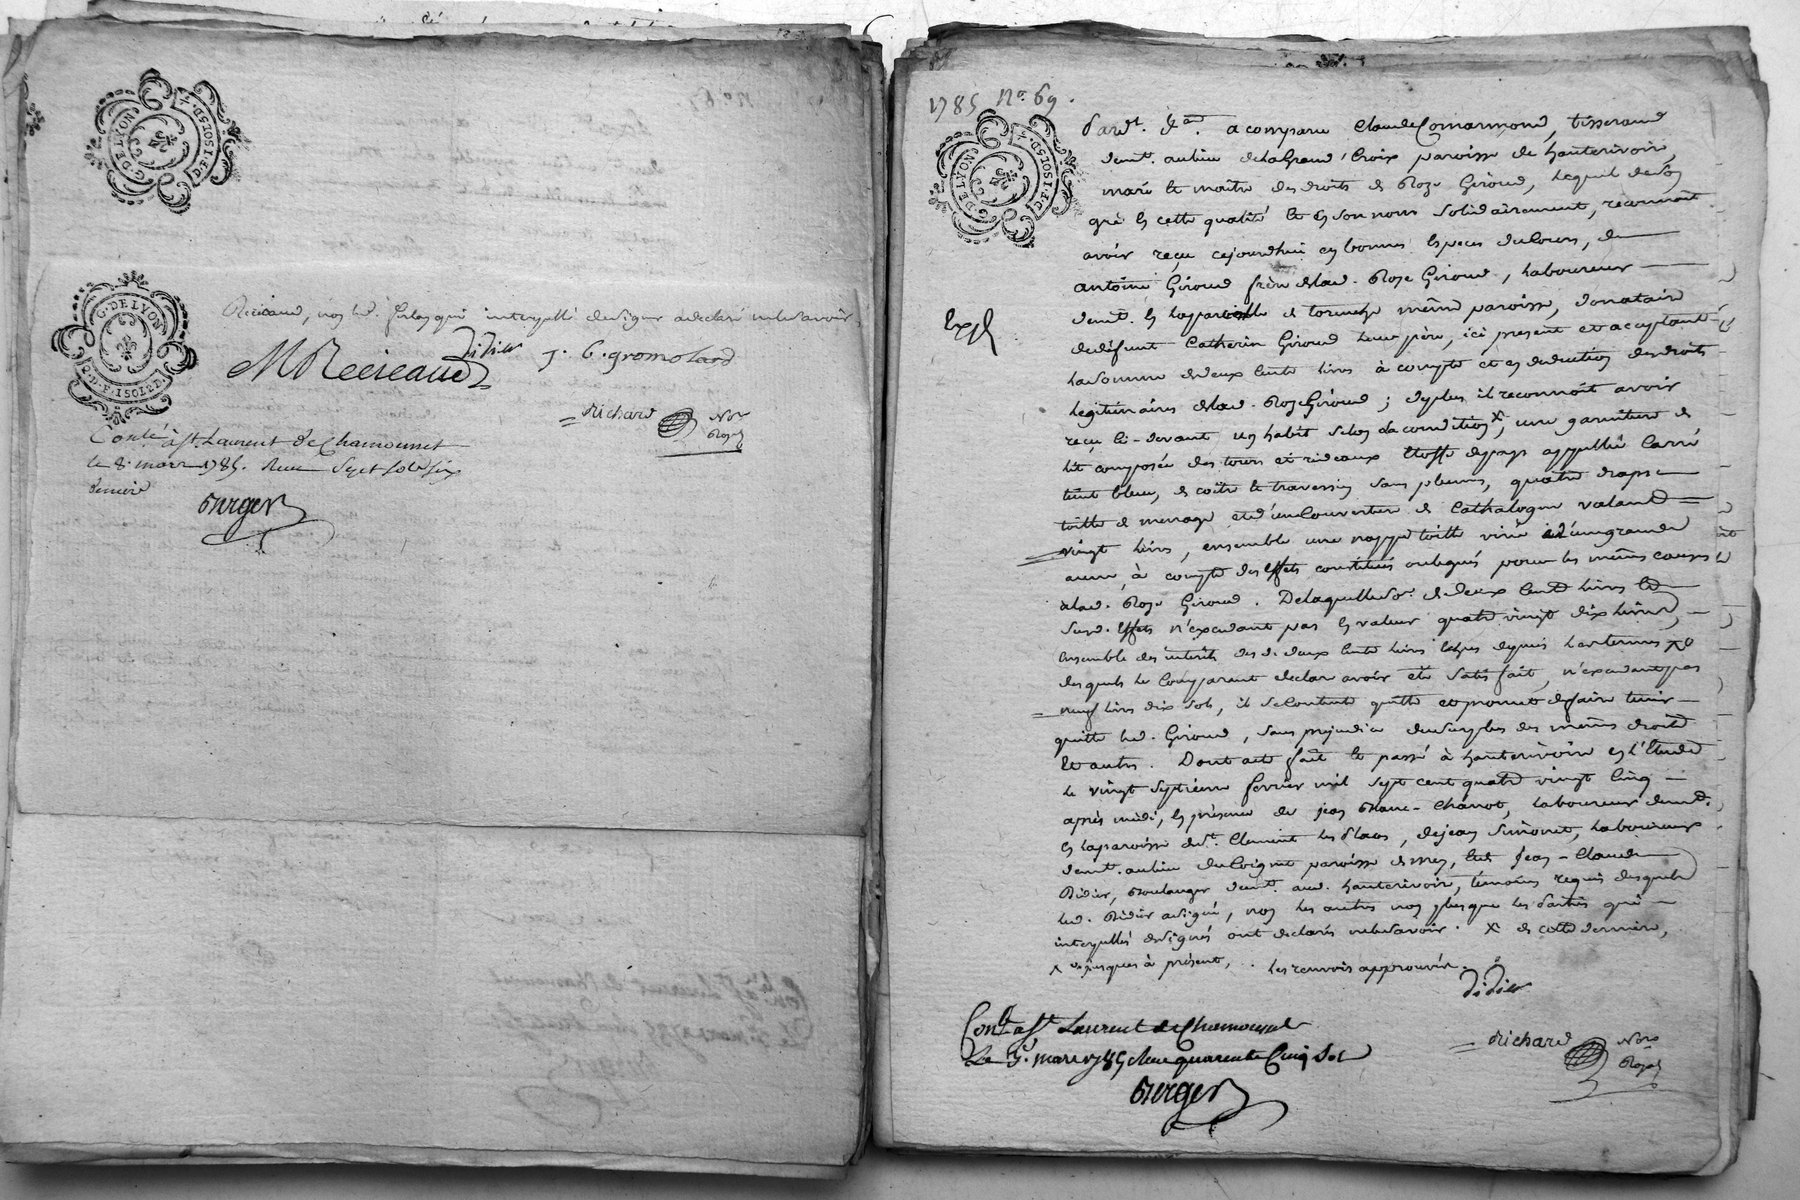 G. DE LYON
D.F. 1SOL5D. 4
G. DE LYON
2.D.F. 1SOL2D.
interpellé de signer a déclaré ne le savoir,
Didier J. C. gromolard
MRecicaud
Richard Nore
Royal
Contlé à St. Laurent de Chamousset
le 8. mars 1785. Reçu sept sols six
deniers
Berger
1785 No. 69.
G. DE LYON
D.F. 1SOL5D. 4
Pardt. &a. a comparu Claude Comarmond, tisserand
demt. au lieu de la Grand' Croix paroisse de hauterivoire,
mari et maître des droits de Roze Giroud, lequel de son
gré en cette qualité et en son nom solidairement, reconnoit
avoir reçu cejourd'hui en bonnes espèces du cours, de
antoine Giroud frère de lad. Roze Giroud, laboureur
Expd
demt. en la paroisse de même paroisse, donataire
de défunt Catherin Giroud leur père, ici présent et acceptant
la somme de deux cents livres à compte et en déduction des droits
légitimaires de lad. Roze Giroud ; de plus il reconnoit avoir
reçu ci-devant un habit selon sa condition x, une garniture de
lit composée des tours et rideaux étoffe de pays appellée carré
teint bleu, de coitre et traversin sans plumes, quatre draps
toille de menage et d'un couverture de Cathalogne valant
vingt livres, ensemble une nappe toille d'une grande
aune, à compte des effets constitués ou légués pour les mêmes causes
à lad. Roze Giroud. De laquelle so. de deux cents livres et
susd. effets n'excedant pas en valeur quatre vingt dix livres,
ensemble des intérêts des d. deux cents livres échus depuis les termes
desquels le comparant déclare avoir été satisfait, n'excedant pas
neuf livres dix sols, il se contente quitte et promet de faire tenir
quitte led. Giroud, sans prejudice du surplus des mêmes droits
et autres. Dont acte fait et passé à hauterivoire en l'Etude
le vingt septieme fevrier mil sept cent quatre vingt cinq
après midi, en présence de jean Blanc-Chanot, laboureur demt.
en la paroisse de St. Clement les places, de jean Simonet, laboureur
demt. au lieu du paroisse de mey, et de Jean-Claude
Didier, Boulanger demt. aud. hauterivoire, témoins requis desquels
led. Didier a signé, non les autres non plus que les parties qui
interpellés de signer ont déclarés ne le savoir. x de cette derniere,
x jusques à présent, les renvois approuvés.
Didier
Contlé à St. Laurent de Chamousset
Le mars 1785 Reçu quarente cinq sols
Berger
Richard Nore
Royal